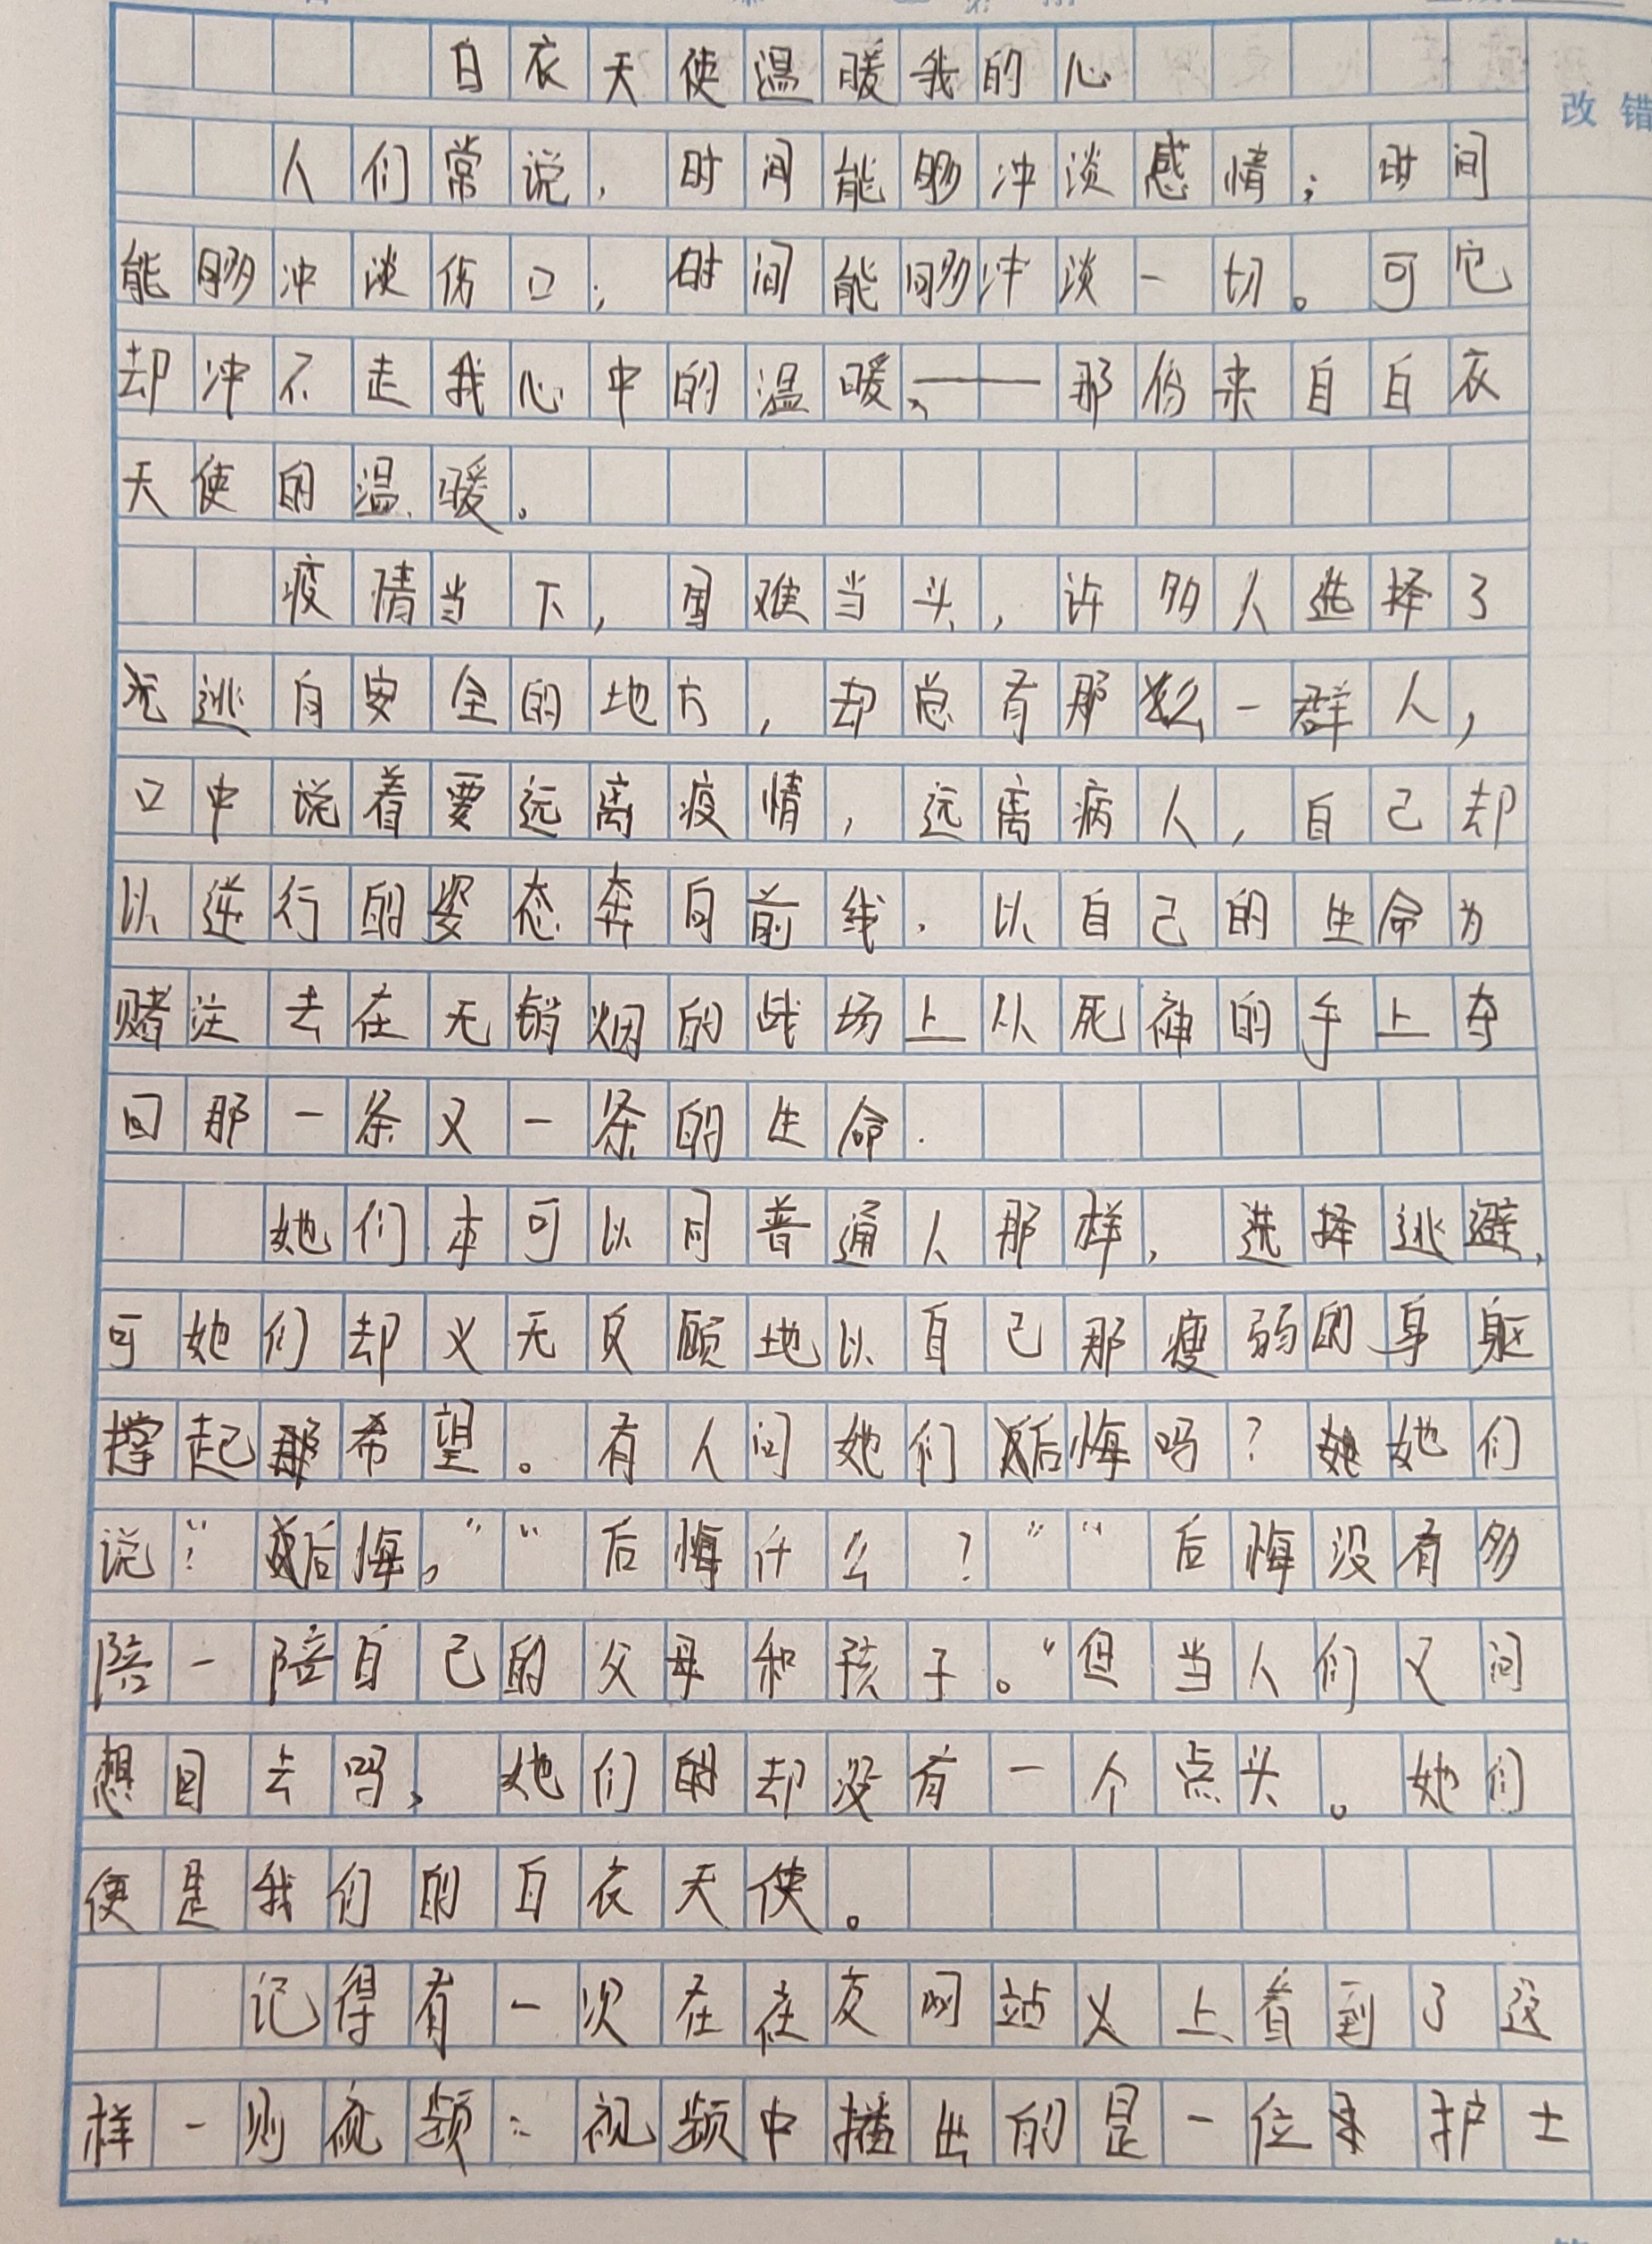 白衣天使温暖我的心
改错
人们常说，时间能够冲淡感情；时间
能够冲淡伤口；时间能够冲淡一切。可它
却冲不走我心中的温暖，——那份来自白衣
天使的温暖。
疫情当下，国难当头，许多人选择了
逃向安全的地方，却总有那么一群人，
口中说着要远离疫情，远离病人，自己却
以逆行的姿态奔向前线，以自己的生命为
赌注去在无销烟的战场上从死神的手上夺
回那一条又一条的生命.
她们本可以同普通人那样，选择逃避，
可她们却义无反顾地以自己那瘦弱的身躯
撑起希望。有人问她们后悔吗？她们
说：“后悔。”“后悔什么？”“后悔没有多
陪一陪自己的父母和孩子。”但当人们又问
想回去吗，她们却没有一个点头。她们
便是我们的白衣天使。
记得有一次在在网站上看到了这
样一则视频：视频中播出的是一位护士